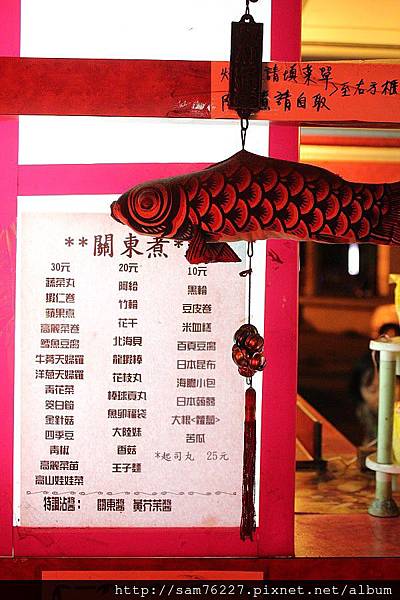 請填菜單
至右手櫃
請自取
**關東煮*
30元
蔬菜丸
蝦仁卷
蘋果煮
高麗菜卷
鱈魚豆腐
牛蒡天婦羅
洋蔥天婦羅
青花菜
筊白筍
金針菇
四季豆
青椒
高麗菜苗
高山娃娃菜
20元
阿給
竹輪
花干
北海貝
龍蝦棒
花枝丸
棒球貢丸
魚卵福袋
大陸妹
香菇
王子麵
10元
黑輪
豆皮卷
米血糕
百頁豆腐
日本昆布
海膽小包
日本蒟蒻
大根<蘿蔔>
苦瓜
*起司丸 25元
特調沾醬： 關東醬 黃芥茉醬
http://sam76227.pixnet.net/album